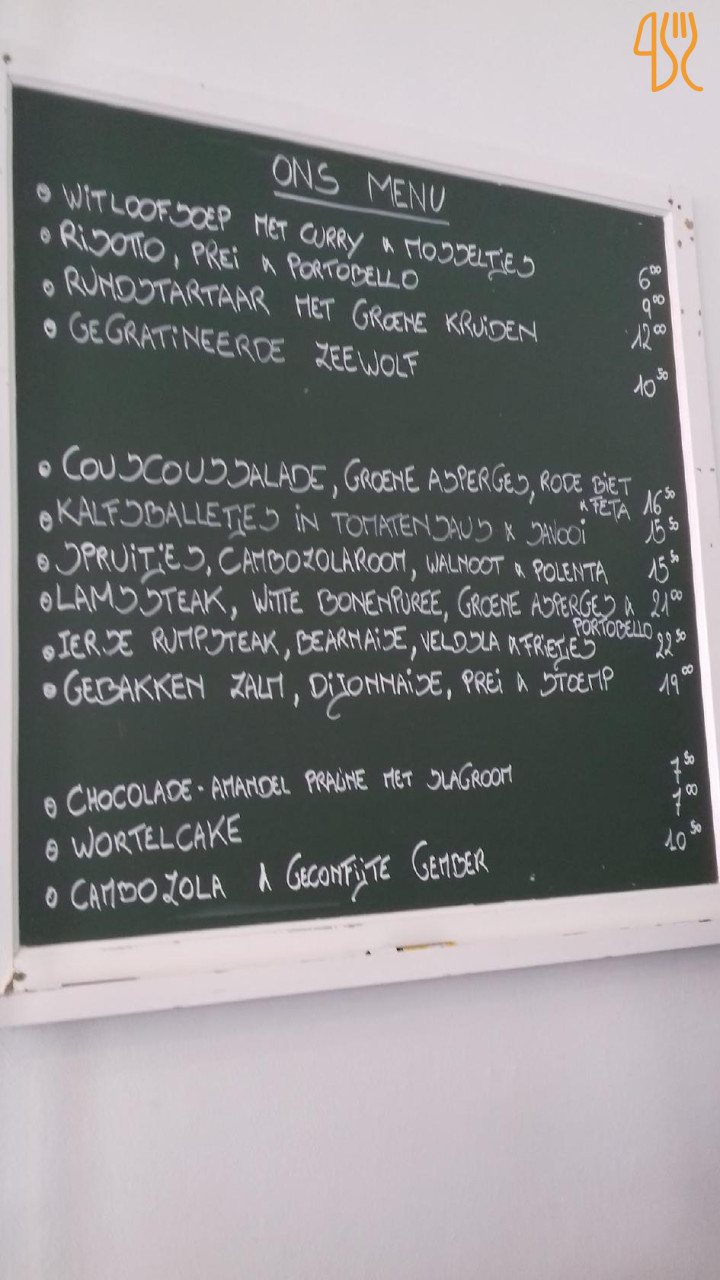 ONS MENU
• WITLOOFSOEP MET CURRY & MOSSELTJES 6⁰⁰
• RISOTTO, PREI & PORTOBELLO 9⁰⁰
• RUNDSTARTAAR MET GROENE KRUIDEN 12⁰⁰
• GEGRATINEERDE ZEEWOLF 10⁵⁰
• COUSCOUSSALADE, GROENE ASPERGES, RODE BIET
& FETA 16⁵⁰
• KALFSBALLETJES IN TOMATENSAUS & SAVOOI 15⁵⁰
• SPRUITJES, CAMBOZOLAROOM, WALNOOT & POLENTA 15⁵⁰
• LAMSSTEAK, WITTE BONENPUREE, GROENE ASPERGES & 21⁰⁰
PORTOBELLO
• IERSE RUMPSTEAK, BEARNAISE, VELDSLA & FRIETJES 22⁵⁰
• GEBAKKEN ZALM, DIJONNAISE, PREI & STOEMP 19⁰⁰
• CHOCOLADE-AMANDEL PRALINE MET SLAGROOM 7⁵⁰
• WORTELCAKE 7⁰⁰
• CAMBOZOLA & GECONFIJTE GEMBER 10⁵⁰